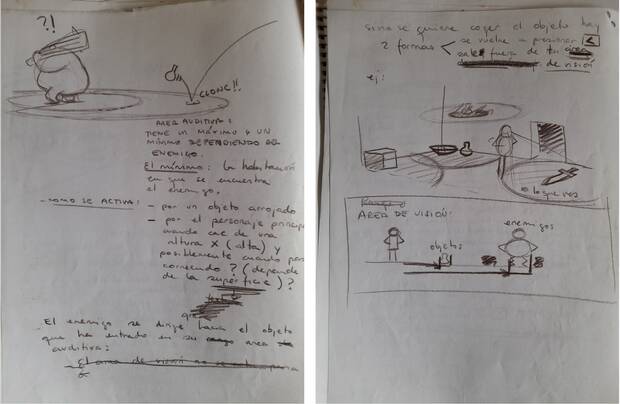 ?!
CLONC!!
AREA AUDITIVA:
TIENE UN MÁXIMO Y UN
MÍNIMO DEPENDIENDO DEL
ENEMIGO.
El mínimo: la habitación
en que se encuentra
el enemigo.
COMO SE ACTIVA: - por un objeto arrojado
- por el personaje princip
cuando cae de una
altura X (alta) y
posiblemente cuando
corriendo? (depende
de la superficie)?
El enemigo se dirige hacia el objeto
que ha entrado en su area
auditiva:
si no se quiere coger el objeto hay
2 formas
se vuelve a presionar
sale fuera de tu
de visión
ej:
o lo que sea
AREA DE VISIÓN:
enemigos
objetos